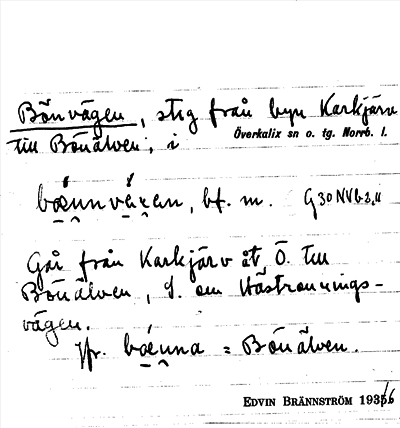 Bönvägen, stig från byn Karkjärv
till Bönälven, i Överkalix sn o. tg. Norrb. l.
bœ́nnvę́γen, bf. m. G 30 NV b 2,4
Går från Karkjärv åt Ö. till
Bönälven, S. om Hästronnings-
vägen.
Jfr. bœ́nna = Bönälven.
EDVIN BRÄNNSTRÖM 1936